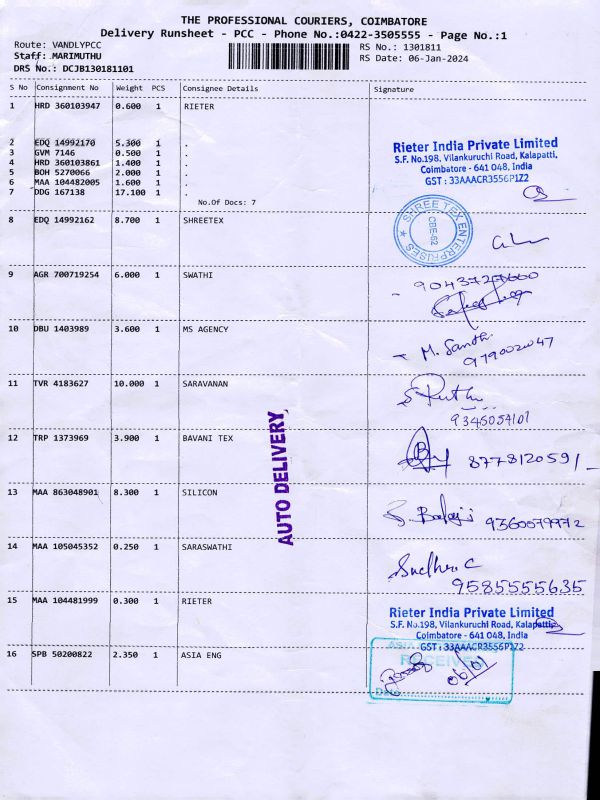 THE PROFESSIONAL COURIERS, COIMBATORE
Delivery Runsheet - PCC - Phone No.:0422-3505555 - Page No.:1
Route: VANDLYPCC RS No.: 1301811
Staff: MARIMUTHU RS Date: 06-Jan-2024
DRS No.: DCJB130181101
S No Consignment No Weight PCS Consignee Details Signature
1 HRD 360103947 0.600 1 RIETER
2 EDQ 14992170 5.300 1 .
3 GVM 7146 0.500 1 .
4 HRD 360103861 1.400 1 .
5 BOH 5270066 2.000 1 .
6 MAA 104482005 1.600 1 .
7 DDG 167138 17.100 1 .
No.Of Docs: 7
Rieter India Private Limited
S.F. No.198, Vilankuruchi Road, Kalapatti,
Coimbatore - 641 048, India
GST : 33AAACR3556P1Z2
8 EDQ 14992162 8.700 1 SHREETEX
SHREE TEX ENTERPRISES
CBE-62
9 AGR 700719254 6.000 1 SWATHI
10 DBU 1403989 3.600 1 MS AGENCY
M. Santhi
11 TVR 4183627 10.000 1 SARAVANAN
9345054101
12 TRP 1373969 3.900 1 BAVANI TEX
8778120591
AUTO DELIVERY
13 MAA 863048901 8.300 1 SILICON
S. Balaji 9360079972
14 MAA 105045352 0.250 1 SARASWATHI
9585555635
15 MAA 104481999 0.300 1 RIETER
Rieter India Private Limited
S.F. No.198, Vilankuruchi Road, Kalapatti,
Coimbatore - 641 048, India
GST : 33AAACR3556P1Z2
16 SPB 50200822 2.350 1 ASIA ENG
RECEIVED
06/01
Date